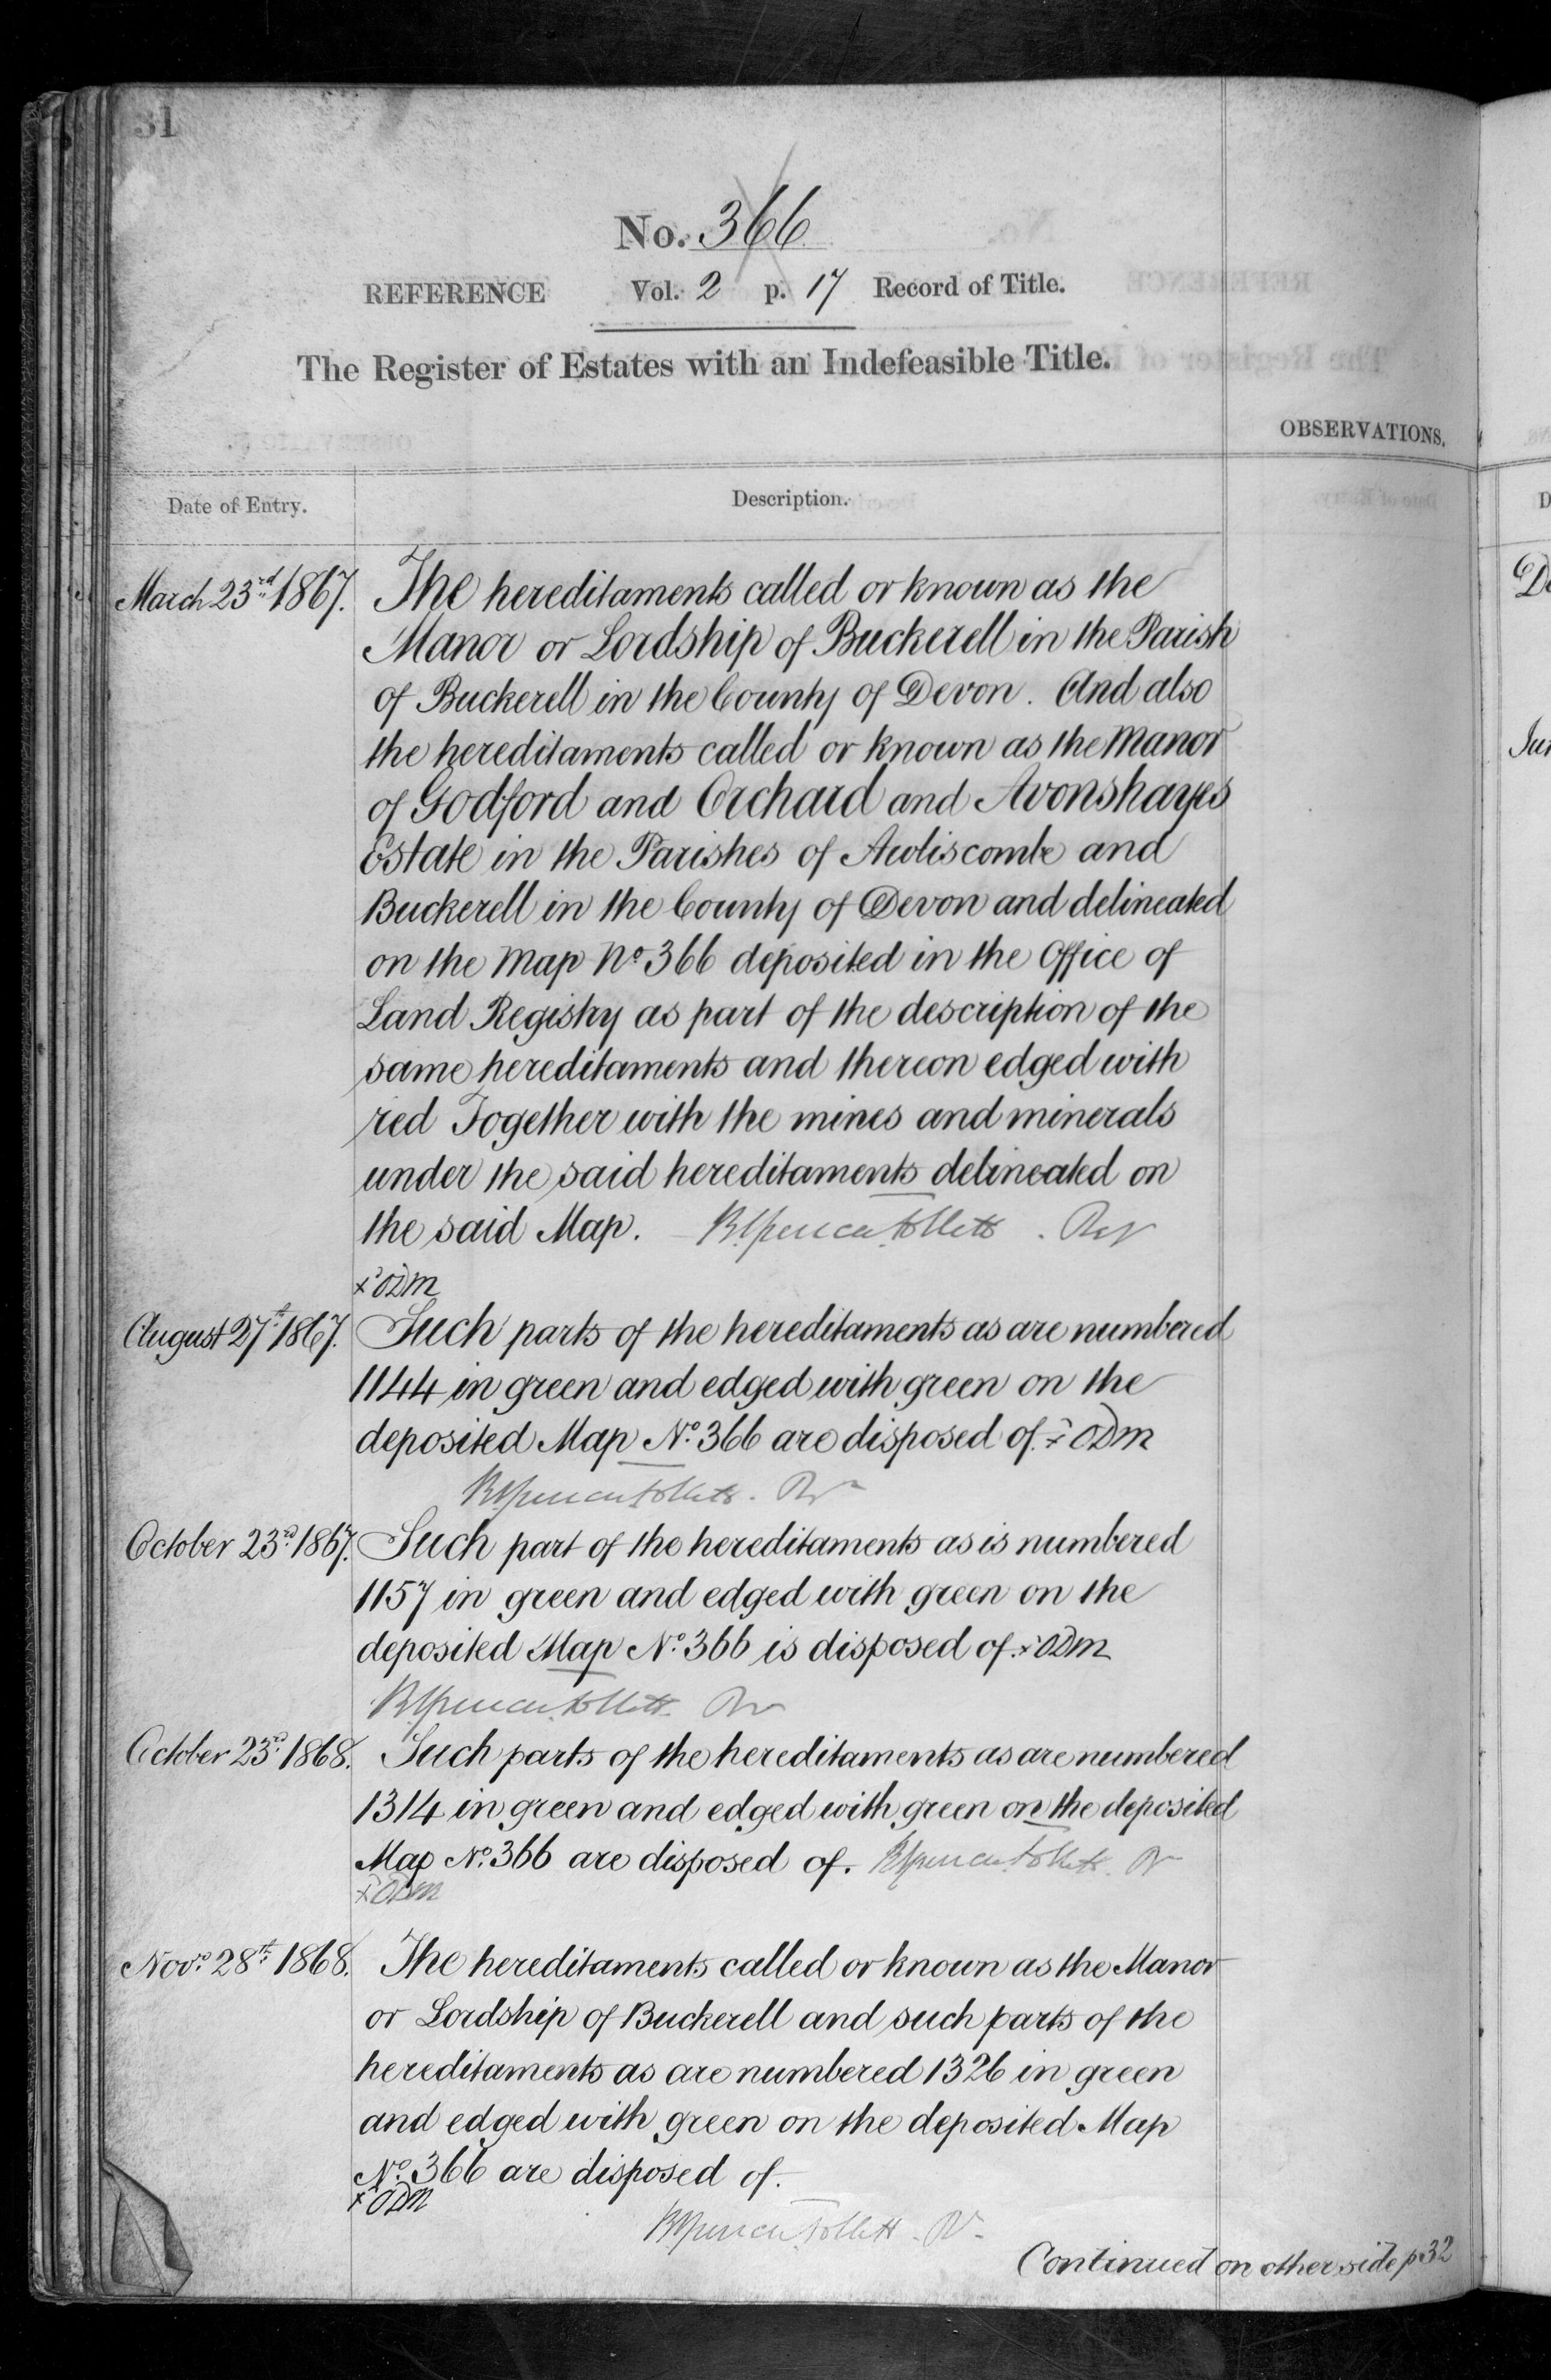 31
No. 366
REFERENCE Vol. 2 p. 17 Record of Title.
The Register of Estates with an Indefeasible Title.
OBSERVATIONS.
Date of Entry. Description.
March 23rd 1867. The hereditaments called or known as the
Manor or Lordship of Buckerell in the Parish
of Buckerell in the County of Devon. And also
the hereditaments called or known as the Manor
of Godford and Orchard and Avonshayes
Estate in the Parishes of Awliscombe and
Buckerell in the County of Devon and delineated
on the Map No 366 deposited in the Office of
Land Registry as part of the description of the
same hereditaments and thereon edged with
red Together with the mines and minerals
under the said hereditaments delineated on
the said Map. Brent Spencer Follett. Regr
x ODM
August 27th 1867. Such parts of the hereditaments as are numbered
1144 in green and edged with green on the
deposited Map No. 366 are disposed of. x ODM
October 23rd 1867. Such part of the hereditaments as is numbered
1157 in green and edged with green on the
deposited Map No. 366 is disposed of. x ODM
October 23rd 1868. Such parts of the hereditaments as are numbered
1314 in green and edged with green on the deposited
Map No. 366 are disposed of.
x ODM
Novr. 28th 1868. The hereditaments called or known as the Manor
or Lordship of Buckerell and such parts of the
hereditaments as are numbered 1326 in green
and edged with green on the deposited Map
No. 366 are disposed of.
x ODM
Continued on other side p 32